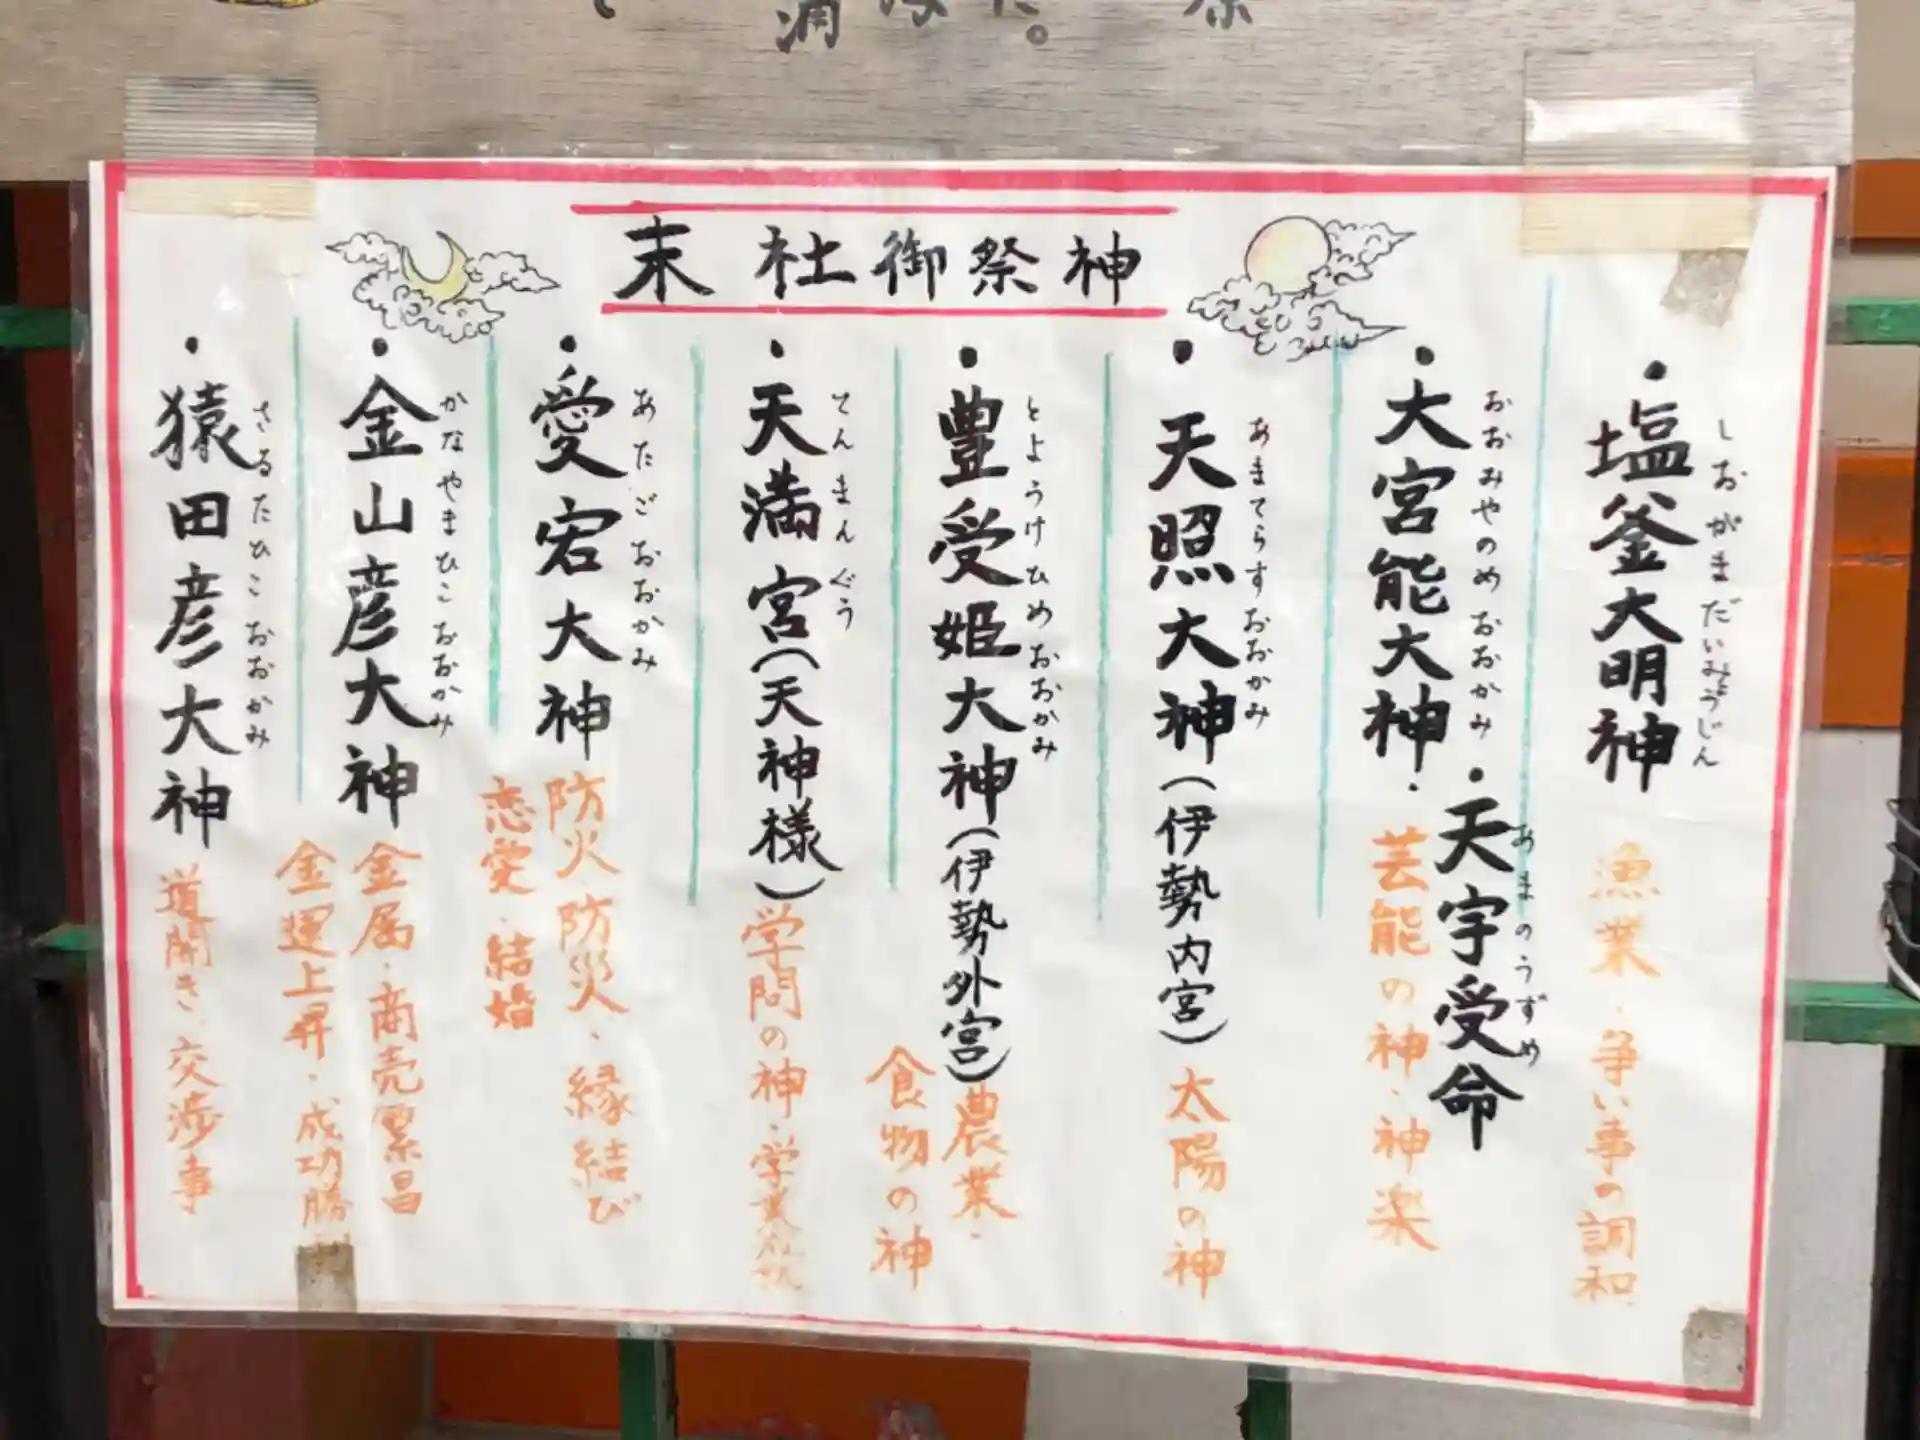 末社御祭神
・塩釜大明神
しおがまだいみょうじん
漁業・争い事の調和
・大宮能大神
おおみやのめおおかみ
・天宇受命
あまのうずめ
・芸能の神・神楽
・天照大神(伊勢内宮)
あまてらすおおかみ
太陽の神
・豊受姫大神(伊勢外宮)
とようけひめおおかみ
農業・
食物の神
・天満宮(天神様)
てんまんぐう
学問の神・学業
・愛宕大神
あたごおおかみ
防火・防災・縁結び
恋愛・結婚
・金山彦大神
かなやまひこおおかみ
金属・商売繁昌
金運上昇・成功勝
・猿田彦大神
さるたひこおおかみ
道開き・交渉事